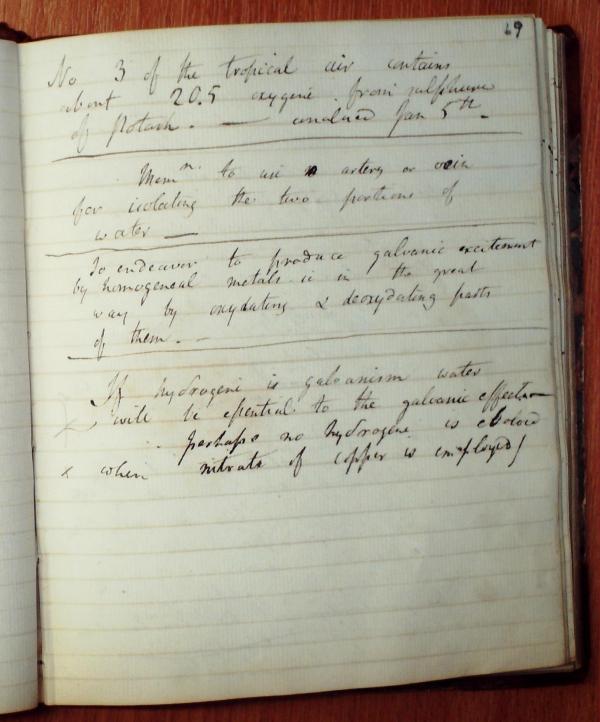 69
No 3 of the tropical air contains
about 20.5 oxygene from sulphure
of Potash. — analised Jan 5th -
Memn. to use artery or vein
for isolating the two portions of
water —
To endeavor to produce galvanic excitement
by homogeneal metals in the great
way by oxydating & deoxydating parts
of them. -
If hydrogene is galvanism water
will be essential to the galvanic effect
perhaps no hydrogene is
x when nitrate of copper is employed/